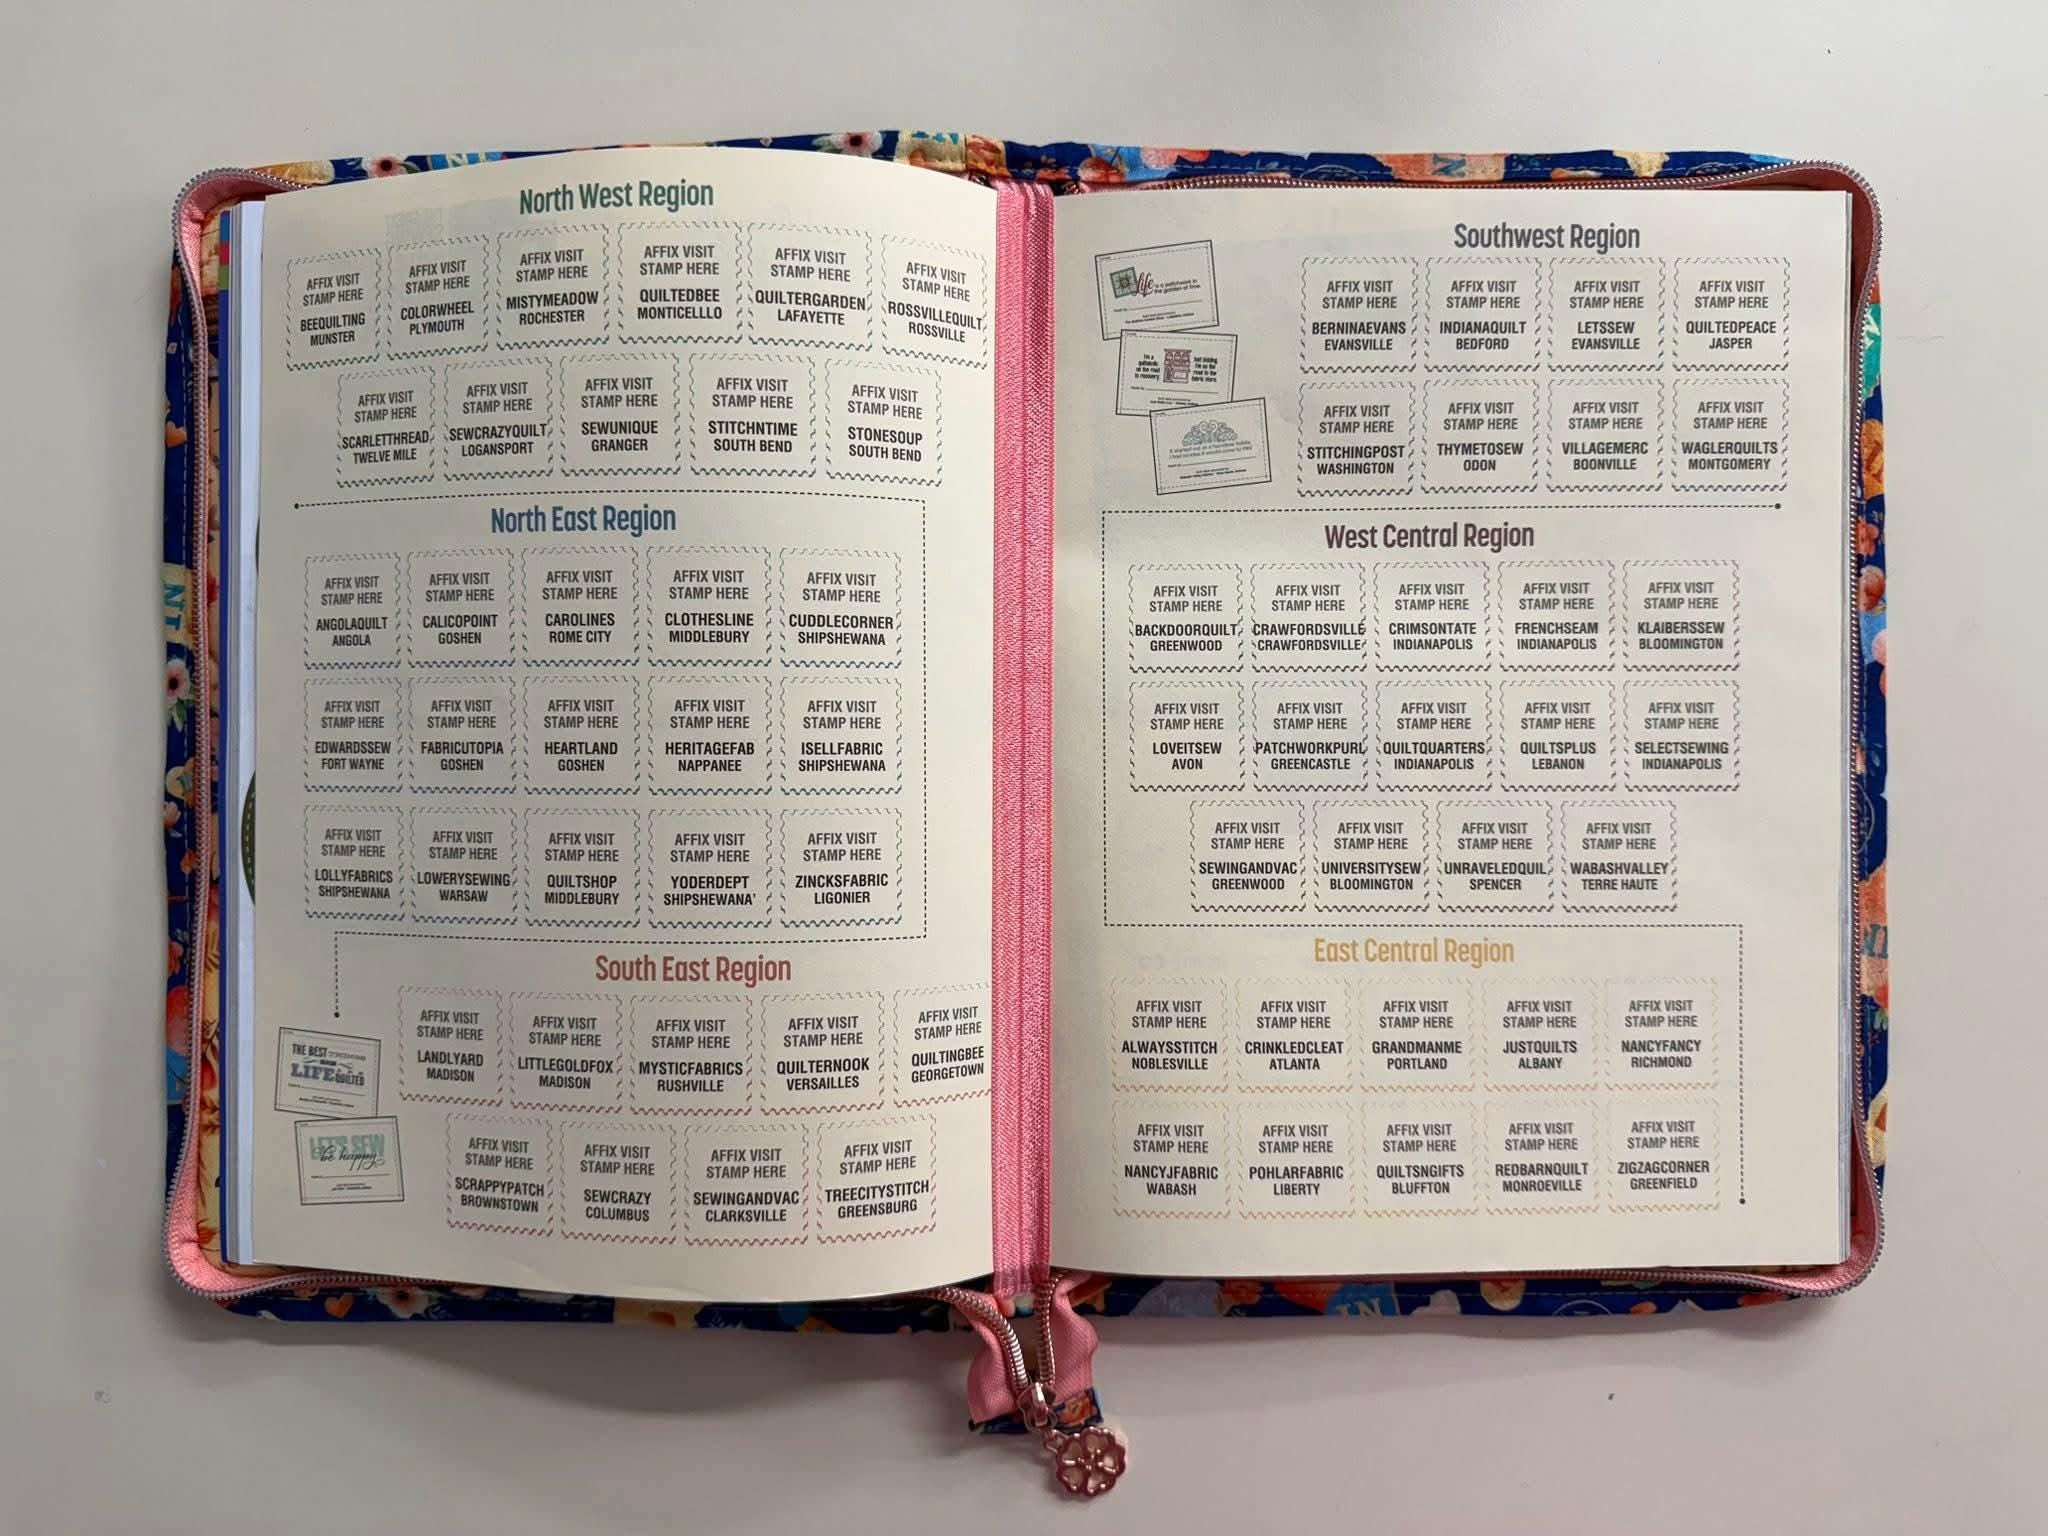 North West Region
AFFIX VISIT
STAMP HERE
BEEQUILTING
MUNSTER
AFFIX VISIT
STAMP HERE
COLORWHEEL
PLYMOUTH
AFFIX VISIT
STAMP HERE
MISTYMEADOW
ROCHESTER
AFFIX VISIT
STAMP HERE
QUILTEDBEE
MONTICELLLO
AFFIX VISIT
STAMP HERE
QUILTERGARDEN
LAFAYETTE
AFFIX VISIT
STAMP HERE
ROSSVILLEQUILT
ROSSVILLE
AFFIX VISIT
STAMP HERE
SCARLETTHREAD
TWELVE MILE
AFFIX VISIT
STAMP HERE
SEWCRAZYQUILT
LOGANSPORT
AFFIX VISIT
STAMP HERE
SEWUNIQUE
GRANGER
AFFIX VISIT
STAMP HERE
STITCHNTIME
SOUTH BEND
AFFIX VISIT
STAMP HERE
STONESOUP
SOUTH BEND
North East Region
AFFIX VISIT
STAMP HERE
ANGOLAQUILT
ANGOLA
AFFIX VISIT
STAMP HERE
CALICOPOINT
GOSHEN
AFFIX VISIT
STAMP HERE
CAROLINES
ROME CITY
AFFIX VISIT
STAMP HERE
CLOTHESLINE
MIDDLEBURY
AFFIX VISIT
STAMP HERE
CUDDLECORNER
SHIPSHEWANA
AFFIX VISIT
STAMP HERE
EDWARDSSEW
FORT WAYNE
AFFIX VISIT
STAMP HERE
FABRICUTOPIA
GOSHEN
AFFIX VISIT
STAMP HERE
HEARTLAND
GOSHEN
AFFIX VISIT
STAMP HERE
HERITAGEFAB
NAPPANEE
AFFIX VISIT
STAMP HERE
ISELLFABRIC
SHIPSHEWANA
AFFIX VISIT
STAMP HERE
LOLLYFABRICS
SHIPSHEWANA
AFFIX VISIT
STAMP HERE
LOWERYSEWING
WARSAW
AFFIX VISIT
STAMP HERE
QUILTSHOP
MIDDLEBURY
AFFIX VISIT
STAMP HERE
YODERDEPT
SHIPSHEWANA'
AFFIX VISIT
STAMP HERE
ZINCKSFABRIC
LIGONIER
South East Region
AFFIX VISIT
STAMP HERE
LANDLYARD
MADISON
AFFIX VISIT
STAMP HERE
LITTLEGOLDFOX
MADISON
AFFIX VISIT
STAMP HERE
MYSTICFABRICS
RUSHVILLE
AFFIX VISIT
STAMP HERE
QUILTERNOOK
VERSAILLES
AFFIX VISIT
STAMP HERE
QUILTINGBEE
GEORGETOWN
THE BEST THINGS
LIFE QUILTED
LET'S SEW
be happy
AFFIX VISIT
STAMP HERE
SCRAPPYPATCH
BROWNSTOWN
AFFIX VISIT
STAMP HERE
SEWCRAZY
COLUMBUS
AFFIX VISIT
STAMP HERE
SEWINGANDVAC
CLARKSVILLE
AFFIX VISIT
STAMP HERE
TREECITYSTITCH
GREENSBURG
Southwest Region
Life is a patchwork in
the garden of time.
I'm a
quiltaholic
on the road
to recovery.
Just kidding
I'm on the
road to the
fabric store.
AFFIX VISIT
STAMP HERE
BERNINAEVANS
EVANSVILLE
AFFIX VISIT
STAMP HERE
INDIANAQUILT
BEDFORD
AFFIX VISIT
STAMP HERE
LETSSEW
EVANSVILLE
AFFIX VISIT
STAMP HERE
QUILTEDPEACE
JASPER
AFFIX VISIT
STAMP HERE
STITCHINGPOST
WASHINGTON
AFFIX VISIT
STAMP HERE
THYMETOSEW
ODON
AFFIX VISIT
STAMP HERE
VILLAGEMERC
BOONVILLE
AFFIX VISIT
STAMP HERE
WAGLERQUILTS
MONTGOMERY
West Central Region
AFFIX VISIT
STAMP HERE
BACKDOORQUILT
GREENWOOD
AFFIX VISIT
STAMP HERE
CRAWFORDSVILLE
CRAWFORDSVILLE
AFFIX VISIT
STAMP HERE
CRIMSONTATE
INDIANAPOLIS
AFFIX VISIT
STAMP HERE
FRENCHSEAM
INDIANAPOLIS
AFFIX VISIT
STAMP HERE
KLAIBERSSEW
BLOOMINGTON
AFFIX VISIT
STAMP HERE
LOVEITSEW
AVON
AFFIX VISIT
STAMP HERE
PATCHWORKPURL
GREENCASTLE
AFFIX VISIT
STAMP HERE
QUILTQUARTERS
INDIANAPOLIS
AFFIX VISIT
STAMP HERE
QUILTSPLUS
LEBANON
AFFIX VISIT
STAMP HERE
SELECTSEWING
INDIANAPOLIS
AFFIX VISIT
STAMP HERE
SEWINGANDVAC
GREENWOOD
AFFIX VISIT
STAMP HERE
UNIVERSITYSEW
BLOOMINGTON
AFFIX VISIT
STAMP HERE
UNRAVELEDQUIL
SPENCER
AFFIX VISIT
STAMP HERE
WABASHVALLEY
TERRE HAUTE
East Central Region
AFFIX VISIT
STAMP HERE
ALWAYSSTITCH
NOBLESVILLE
AFFIX VISIT
STAMP HERE
CRINKLEDCLEAT
ATLANTA
AFFIX VISIT
STAMP HERE
GRANDMANME
PORTLAND
AFFIX VISIT
STAMP HERE
JUSTQUILTS
ALBANY
AFFIX VISIT
STAMP HERE
NANCYFANCY
RICHMOND
AFFIX VISIT
STAMP HERE
NANCYJFABRIC
WABASH
AFFIX VISIT
STAMP HERE
POHLARFABRIC
LIBERTY
AFFIX VISIT
STAMP HERE
QUILTSNGIFTS
BLUFFTON
AFFIX VISIT
STAMP HERE
REDBARNQUILT
MONROEVILLE
AFFIX VISIT
STAMP HERE
ZIGZAGCORNER
GREENFIELD